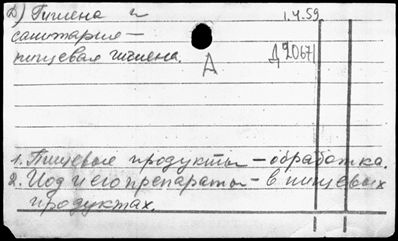 Д) Гигиена и 1.4.59.
санитария —
пищевая гигиена. Д 20671
А
1. Пищевые продукты — обработка.
2. Иод и его препараты — в пищевых
продуктах.